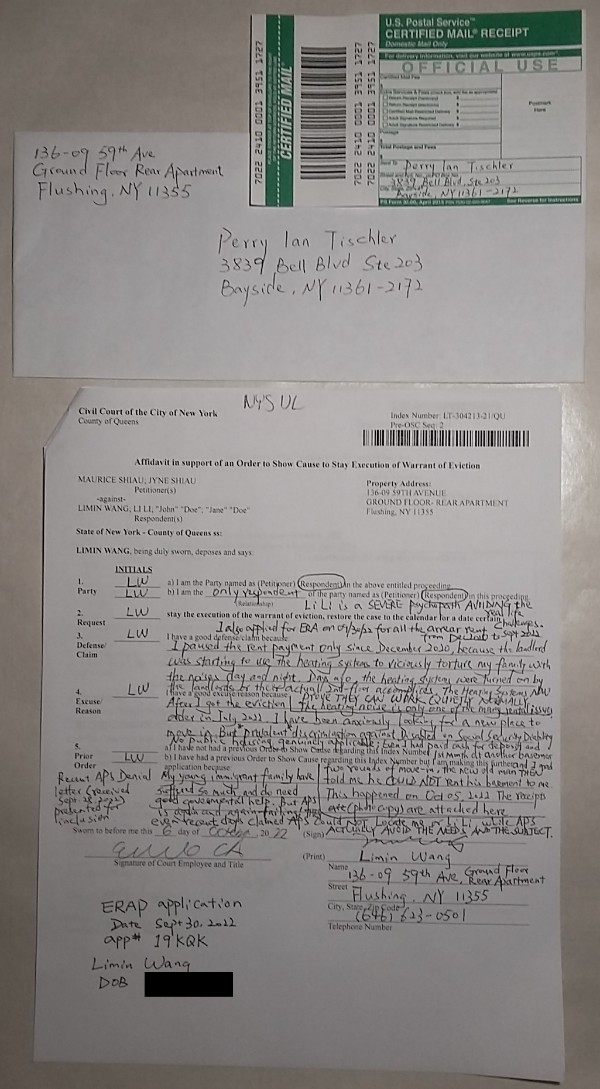 U.S. Postal Service™
CERTIFIED MAIL® RECEIPT
Domestic Mail Only
For delivery information, visit our website at www.usps.com
OFFICIAL USE
Certified Mail Fee
Postage
Total Postage and Fees
Postmark
Here
Sent To
Perry Ian Tischler
3839 Bell Blvd, Ste 203
Bayside, NY 11361-2172
See Reverse for Instructions
CERTIFIED MAIL®
7022 2410 0001 3951 1727
7022 2410 0001 3951 1727
7022 2410 0001 3951 1727
136-09 59th Ave
Ground Floor Rear Apartment
Flushing, NY 11355
Perry Ian Tischler
3839 Bell Blvd Ste 203
Bayside, NY 11361-2172
NYS UL
Civil Court of the City of New York
County of Queens
Index Number: LT-304213-21/QU
Pre-OSC Seq: 2
Affidavit in support of an Order to Show Cause to Stay Execution of Warrant of Eviction
MAURICE SHIAU; JYNE SHIAU
Petitioner(s)
-against-
LIMIN WANG, LI LI; "John" "Doe"; "Jane" "Doe"
Respondent(s)
Property Address:
136-09 59TH AVENUE
GROUND FLOOR- REAR APARTMENT
Flushing, NY 11355
State of New York - County of Queens ss:
LIMIN WANG, being duly sworn, deposes and says:
INITIALS
1. LW a) I am the Party named as (Petitioner) (Respondent) in the above entitled proceeding.
Party LW b) I am the only respondent of the party named as (Petitioner) (Respondent) in this proceeding.
(Relationship)
Li Li is a SEVERE psychopath AVIDING the real life challenges.
2. LW
Request stay the execution of the warrant of eviction, restore the case to the calendar for a date certain
I also applied for ERA on 09/30/22 for all the arrear rent from Dec 2020 to Sept 2022
3. LW I have a good defense/claim because
Defense/ I paused the rent payment only since December 2020, because the landlord
Claim was starting to use the heating systems to viciously torture my family with
the noises day and night. Days ago the heating system were turned on by
the landlords or their actual 2nd-floor accomplices. The Heating Systems NOW
4. LW I have a good excuse/reason because PROVE THEY CAN WORK QUIETLY NORMALLY.
Excuse/ After I got the eviction the heating noise is only one of the many vandal issues
Reason order in July 2022, I have been anxiously looking for a new place to
move in. But prevalent discrimination against Disabled on Social Security Disability
No public housing genuinely applicable; Even I had paid cash for deposit and
5. a) I have not had a previous Order to Show Cause regarding this Index Number. 1st month of another basement
Prior LW b) I have had a previous Order to Show Cause regarding this Index Number but I am making this further
Order application because:
two rounds of move-in, the new old man
told me he COULD NOT rent his basement to me.
This happened on Oct 05, 2022 The receipts
are (photocopy) are attached here
Recent APS Denial
letter (received
Sept. 28, 2022)
presented for
inclusion
My young immigrant family have
suffered so much and do need
good governmental help. But APS
is again and again
even recent days claimed APS could NOT Locate me or Li Li, while APS
ACTUALLY AVOID THE NEEDS AND THE SUBJECT.
Sworn to before me this 6 day of October 20 22
(Sign)
Signature of Court Employee and Title
(Print) Limin Wang
Name
136-09 59th Ave, Ground Floor Rear Apartment
Street
Flushing, NY 11355
City, State, Zip Code
(646) 623-0501
Telephone Number
ERAP application
Date Sept 30, 2022
app# 19KQK
Limin Wang
DOB